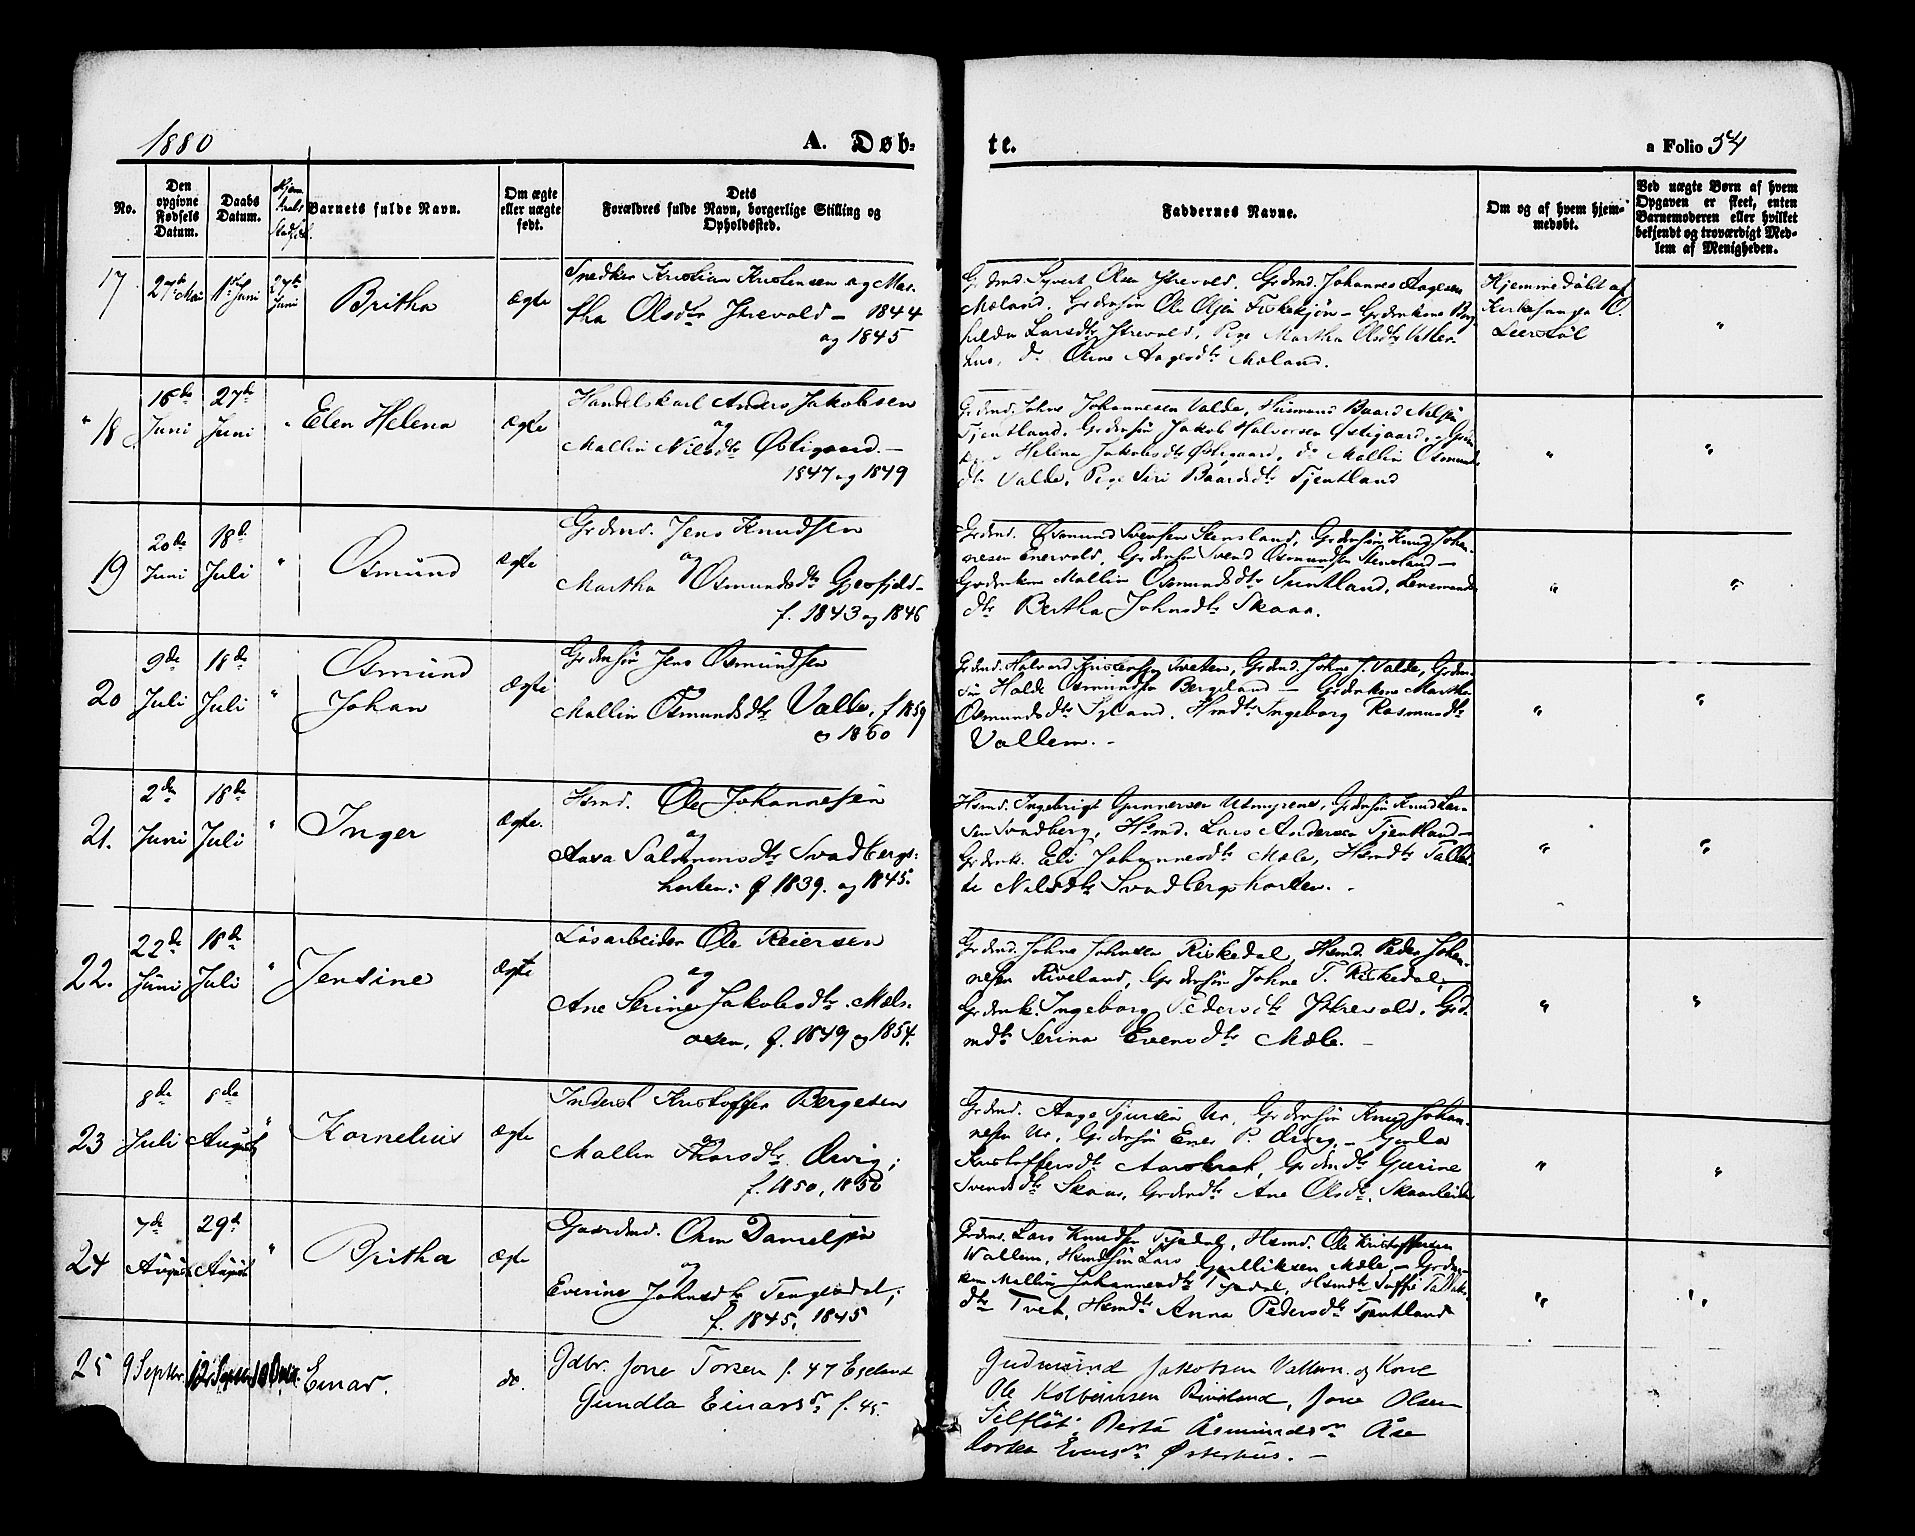 1880
A. Døb-
te.
a Folio 54
No.
Den opgivne Fødsels Datum.
Daabs Datum.
Barnets fulde Navn.
Om ægte eller uægte født.
Dets Forældres fulde Navn, borgerlige Stilling og Opholdssted.
Faddernes Navne.
Om og af hvem hjemmedøbt.
Ved uægte Børn af hvem Opgaven er skeet, enten Barnemoderen eller hvilket bekjendt og troværdigt Medlem af Menigheden.
17
27de Mai
1ste Juni
27de Juni
Britha
Ægte
Snedker Kristian Kristensen og Mar-
tha Olsdtr Ystevold – 1844
og 1845
Grdmd. Syvert Olsen Ystevold, Grdmd. Johannes Aagesen
Mæland, Grdensøn Ole Olsen Fiskekjøn – Grdenkone
Larsdtr Ystevold, Pige Martha Olsdtr
hus, do Ane Aagesdtr Mæland.
Hjemmedøbt af
Kirkesanger O.
18
16de Juni
27de Juni
Elen Helena
Ægte
Handelskarl Anders Jakobsen
og
Mallin Nilsdtr Østigaard. –
1847 og 1849
Grdmd. Johne Johannesen Valde, Husmand Baard Nilsen
Tjentland, Grdensøn Jakob Halvorsen Østigaard,
Helena Jakobsdtr Østigaard, do Mallin Osmunds
dtr Valde, Pige Siri Baardsdtr Tjentland
19
20de Juni
18de Juli
Osmund
Ægte
Grdmd. Jens Knudsen
og
Martha Osmundsdtr
f. 1843 og 1846
Grdmd. Osmund Svensen Stensland, Grdensøn Knud Johan-
nesen Enervold, Grdensøn Svend Osmundsen Stensland –
Grdenkone Mallin Osmundsdtr Tjentland, Lensmands
dtr Bertha Johnsdtr Skaar.
20
9de Juli
18de Juli
Osmund
Johan
Ægte
Grdensøn Jens Osmundsen
Mallin Osmundsdtr Valle, f 1859
og 1860
Grdmd. Halvard Tveten, Grdmd. Johne J. Valde, Grden-
søn Halde Osmundsen Bergeland – Grdenkone Martha
Osmundsdtr Syland, Hsmdtr Ingeborg Rasmusdtr
Vallem. –
21.
2den Juni
18de Juli
Inger
Ægte.
Hsmd. Ole Johannesen
og
Aasa Salomonsdtr Svadbergs-
horten; f 1839. og 1845.
Hsmd. Ingebrigt Gunnersen Utmyrene, Grdensøn Knud Lar-
sen Svadberg, Hsmd. Lars Andersen Tjentland –
Grdenk. Eli Johannesdtr Mæle, Hsmdtr Talle
te Nilsdtr Svadbergshorten. –
22.
22de Juni
18de Juli
Jensine
Ægte
Løsarbeider Ole Reiersen
og
Ane Serine Jakobsdtr Mæls-
osen, f. 1849 og 1854.
Grdmd. Johne Johnsen Riskedal, Hsmd. Peder Johan-
nesen Riveland, Grdensøn Johne T. Riskedal,
Grdenk. Ingeborg Pedersdtr Ystevold, Grd.
mdtr Serina Evensdtr Mæle. –
23
8de Juli
8de August
Kornelius
Ægte
Inderst Kristoffer Bergesen
og
Mallin Thorsdtr Ørvig;
f. 1850, 1850
Grdmd. Aage Sjursen Ur, Grdensøn Knud Johan-
nesen Ur, Grdensøn Ener P. Ørvig, – Gunla
Kristoffersdtr, Grdmdtr Gurine
Svendsdtr Skaar, Grdmdtr Ane Olsdtr, Skaarleide
24
7de August
29de August
Britha
Ægte
Gaardmd. Oren Danielsen
og
Everine Johnsdtr Tengesdal;
f. 1845, 1845
Grdmd. Lars Knudsen Tysdal, Hsmd. Ole Kristoffersen
Vallem, Hsmdsøn Lars Gulliksen Mæle, – Grden-
kone Mallin Johannesdtr Tysdal, Hsmdtr
dtr Tvet, Hsmdtr Anna Pedersdtr Tjentland
25
9 Septbr.
12 Septbr
Einar.
do.
Gdbr. Jone Torsen f. 47 Eseland
Gundla Einarsdr f. 45.
Gudmund Jakobsen Vallem og Kone
Ole Kolbeinsen Riveland, Jone Olsen
Selfløt, Berta Åsmundsdr Åse
Dortea Evensdr Østerhus. –